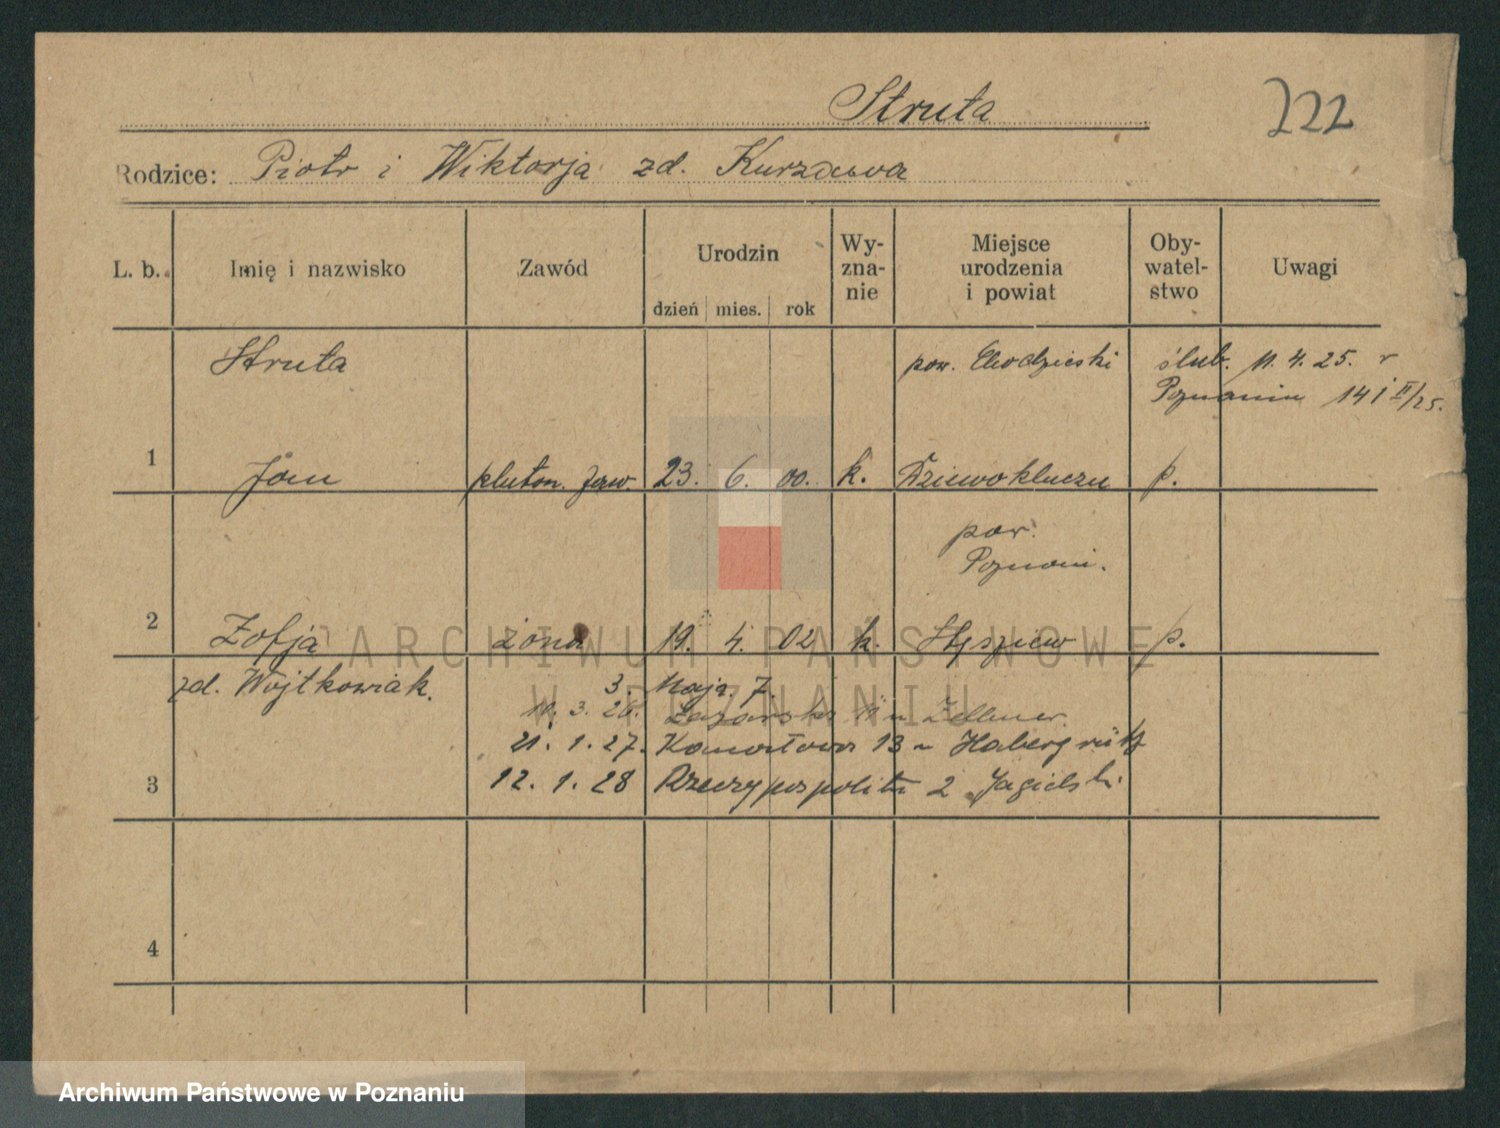 Struta
722
Rodzice: Piotr i Wiktorja zd. Kurzawa
L. b. Imię i nazwisko Zawód Urodzin dzień mies. rok Wyznanie Miejsce urodzenia i powiat Obywatelstwo Uwagi
Struta pow. Chodzieski ślub. 11. 4. 25. v
Poznaniu 141 II/25.
1 Jan pluton. zaw. 23. 6. 00. k. Dziewokluczu p.
pow.
Poznań.
2 Zofja żona 19. 4. 02 k. Stęszew p.
zd. Wojtkowiak. 3. Maja. 7.
10. 3. 26. Łazarska 11 u Zellmer.
21. 1. 27. Kanałowa 13 u
3 12. 1. 28 Rzeczypospolita 2 Jagielski.
4
ARCHIWUM PAŃSTWOWE
W POZNANIU
Archiwum Państwowe w Poznaniu